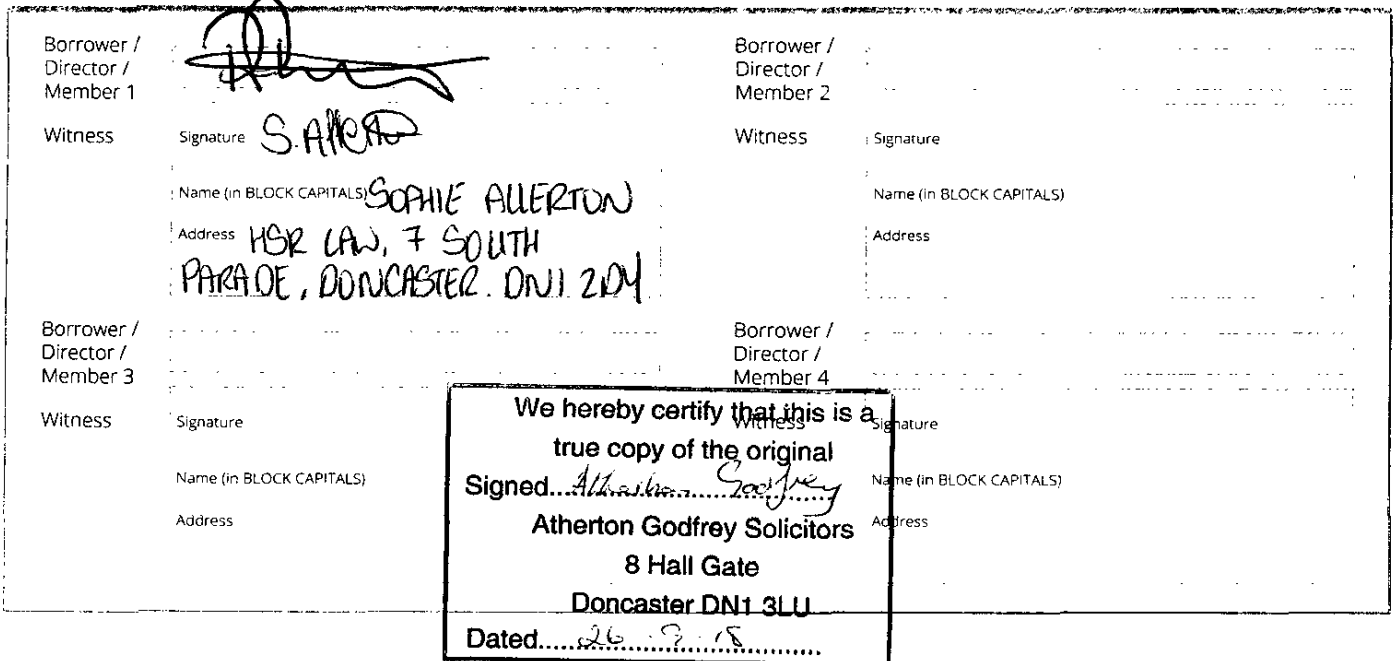 Borrower /
Director /
Member 1
Witness
Signature S. Allerton
Name (in BLOCK CAPITALS) SOPHIE ALLERTON
Address HSR LAW, 7 SOUTH
PARADE, DONCASTER. DN1 2DY
Borrower /
Director /
Member 2
Witness
Signature
Name (in BLOCK CAPITALS)
Address
Borrower /
Director /
Member 3
Witness
Signature
Name (in BLOCK CAPITALS)
Address
Borrower /
Director /
Member 4
Witness
Signature
Name (in BLOCK CAPITALS)
Address
We hereby certify that this is a
true copy of the original
Signed.... Atherton Godfrey
Atherton Godfrey Solicitors
8 Hall Gate
Doncaster DN1 3LU
Dated..... 26.9.18